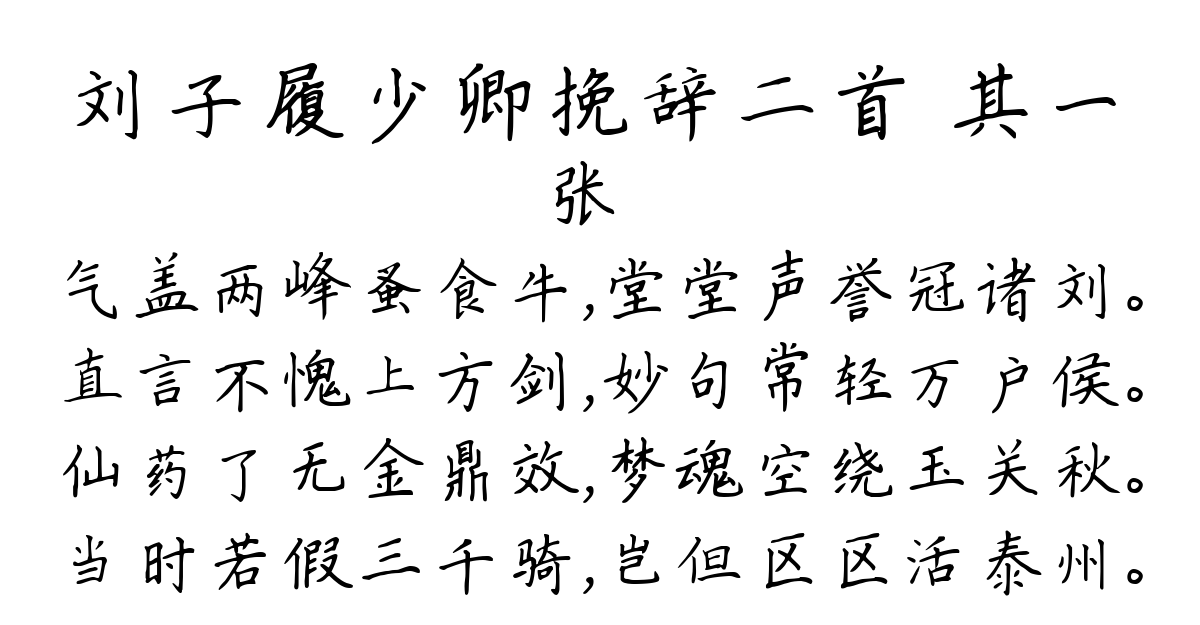 刘子履少卿挽辞二首 其一
张
气盖两峰蚤食牛,堂堂声誉冠诸刘。
直言不愧上方剑,妙句常轻万户侯。
仙药了无金鼎效,梦魂空绕玉关秋。
当时若假三千骑,岂但区区活泰州。